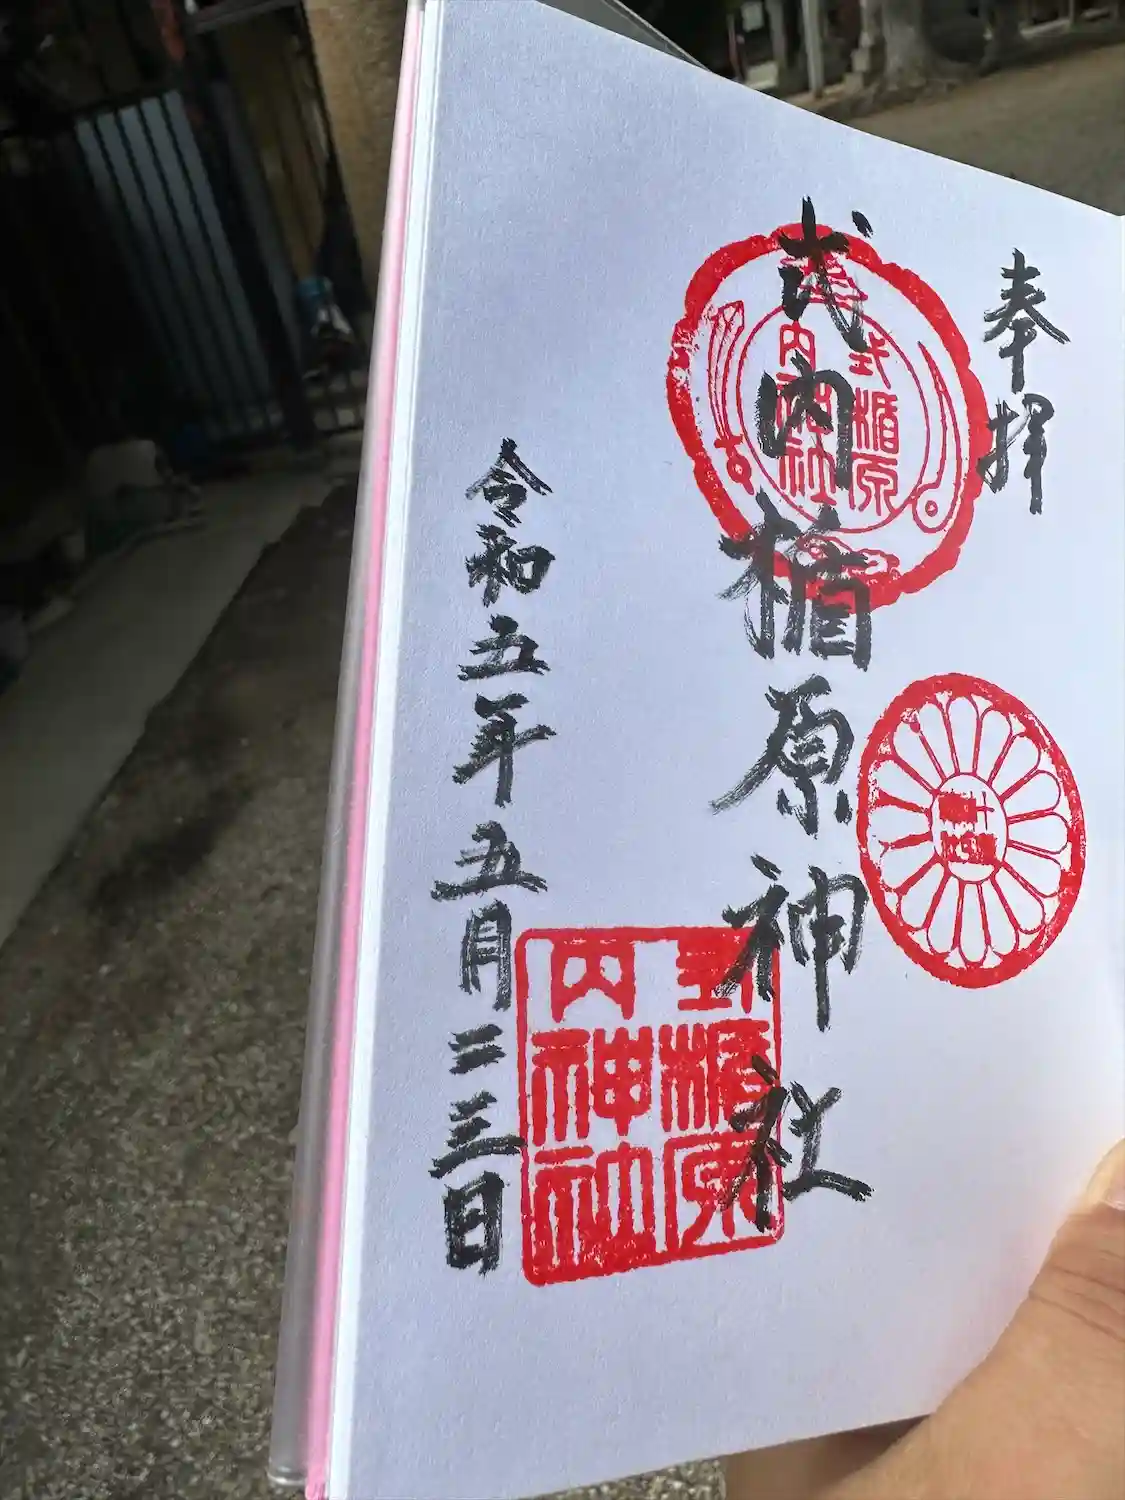 奉拝
式内楯原神社
式楯原
内神社
式楯原
内神社
令和五年五月二三日